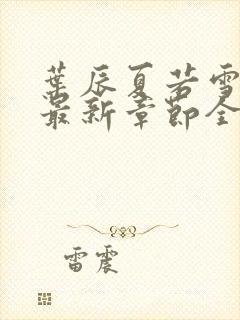 葉辰夏若雪
最新章節全
雷震